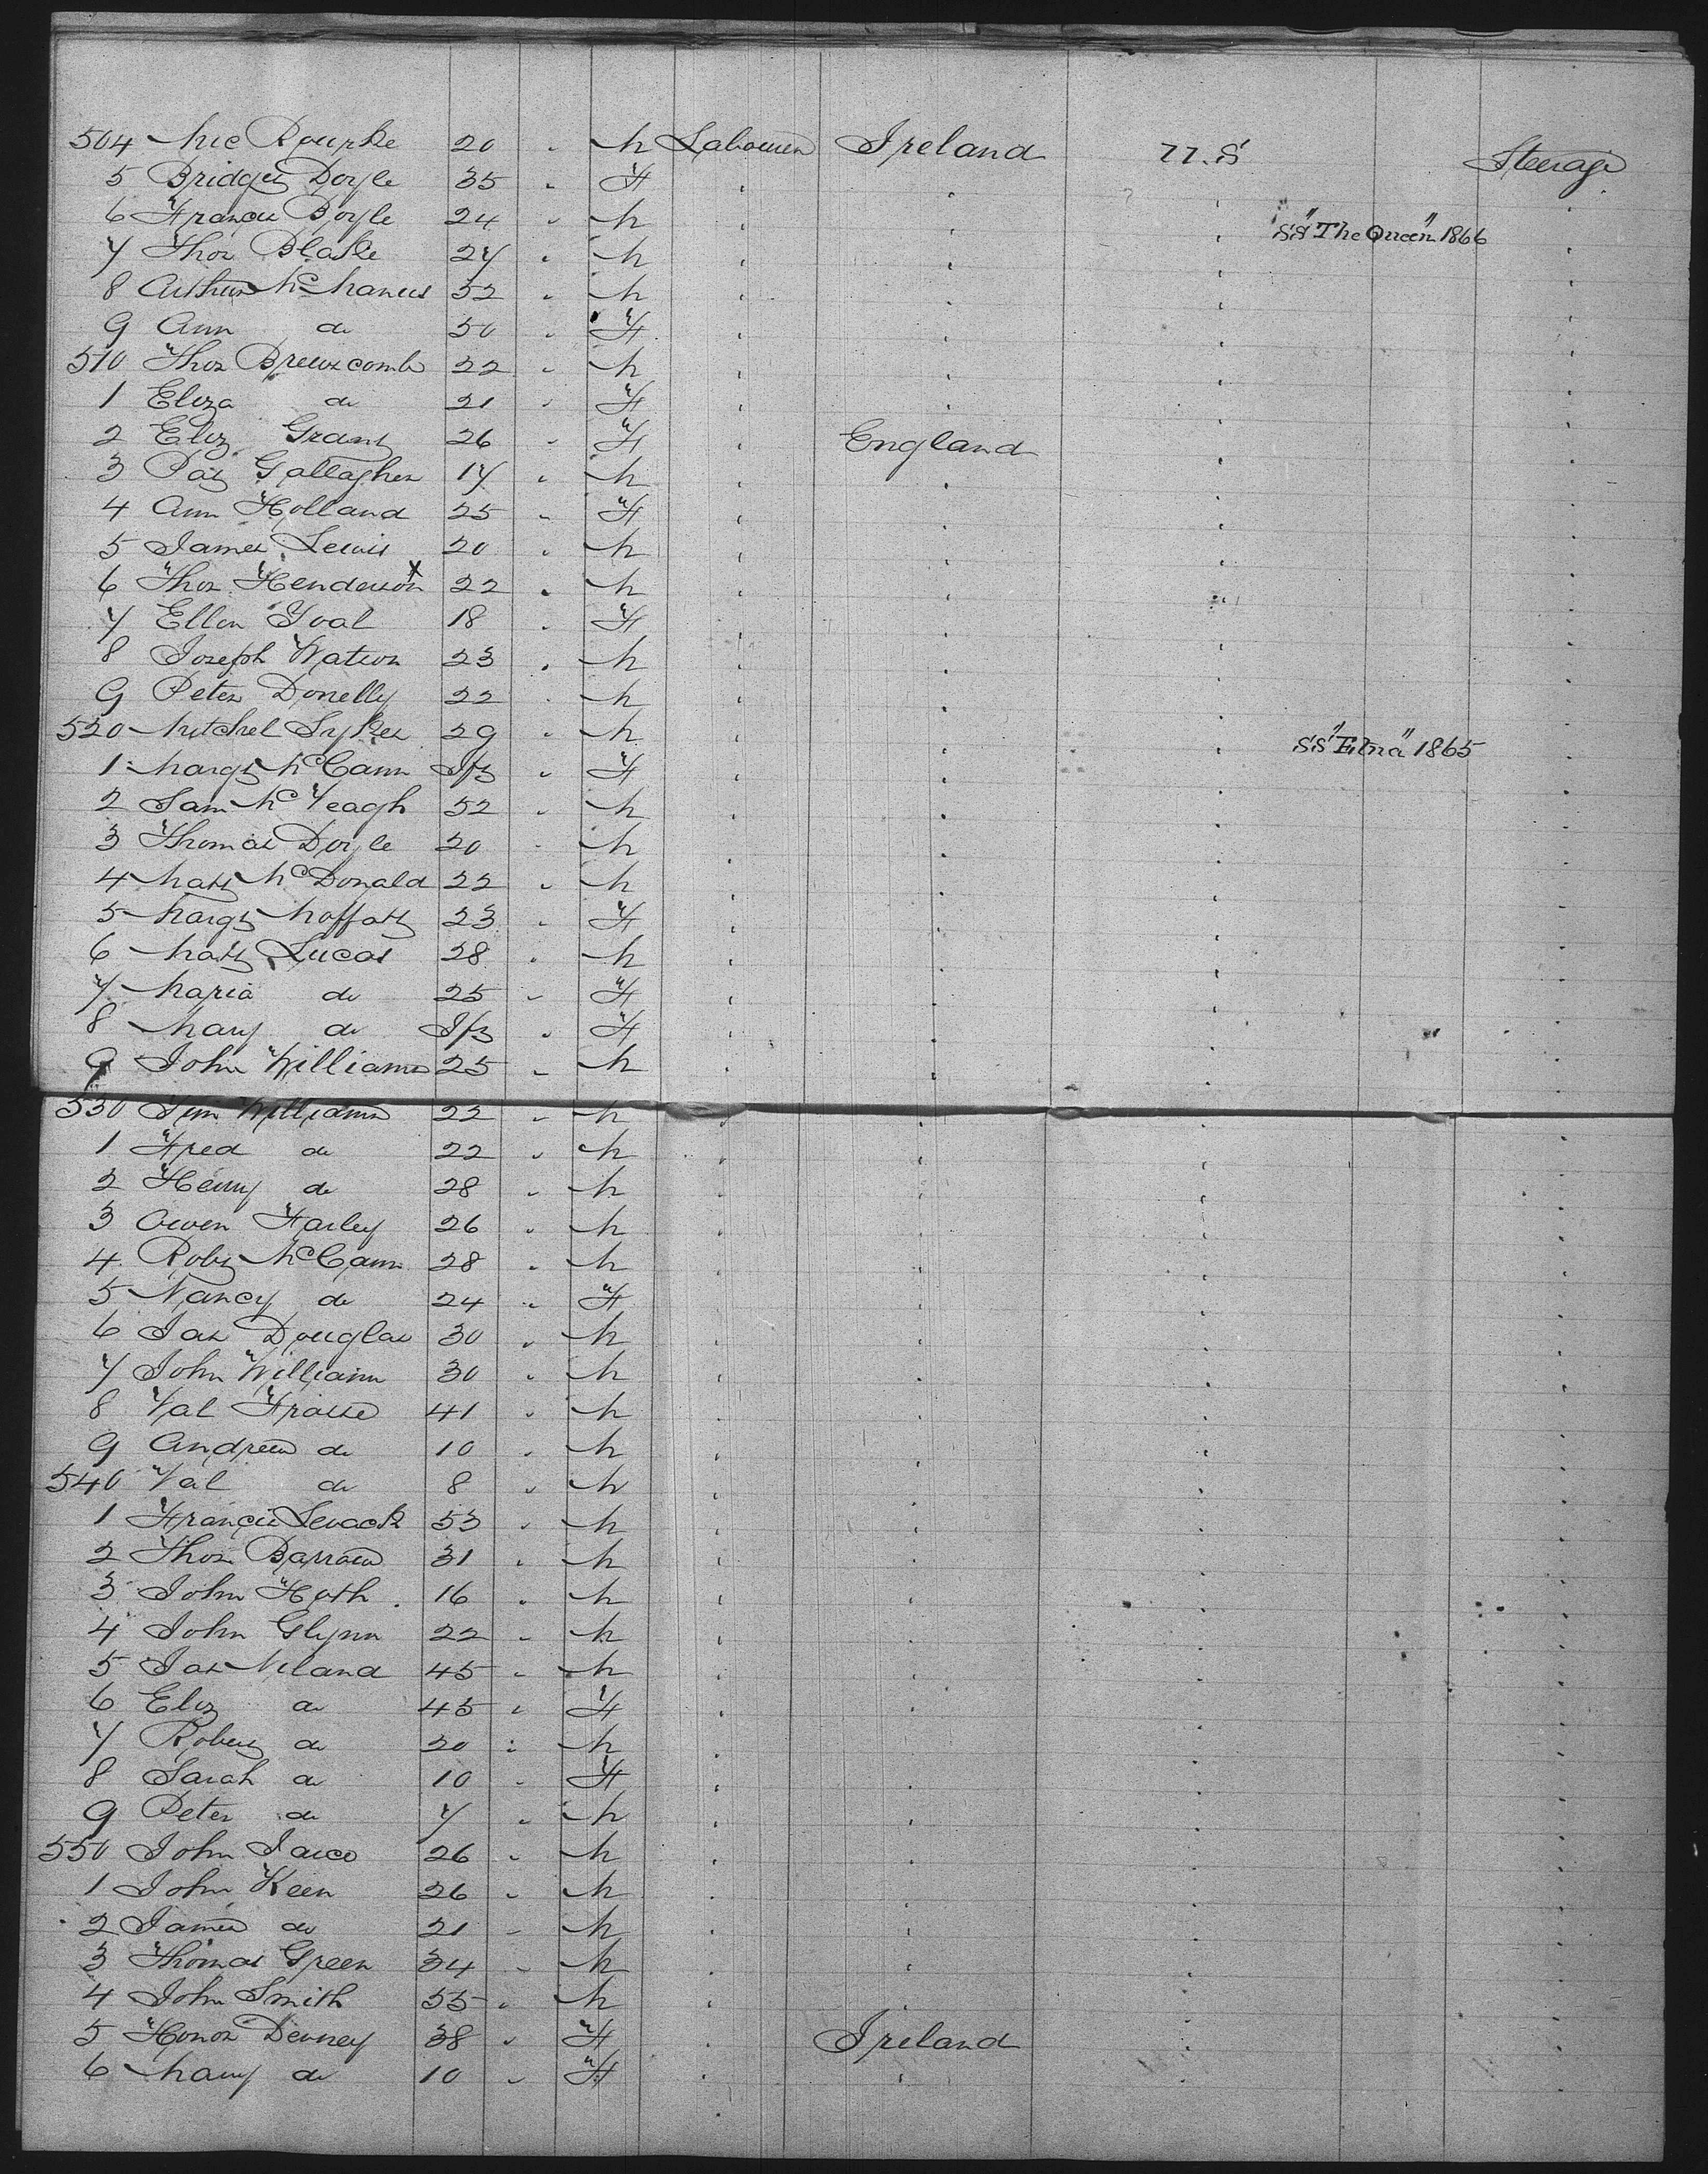 504 Mic Rourke 20 " M Labourer Ireland U.S Steerage
5 Bridget Doyle 35 " F
6 Francis Boyle 24 " M SS "The Queen" 1866
7 Thos Blake 27 " M
8 Arthur McManus 52 " M
9 Ann do 50 " F
510 Thos Brewscomb 22 " M
1 Eliza do 21 " F
2 Eliz Grant 26 " F England
3 Pat Gallagher 17 " M
4 Ann Holland 25 " F
5 James Lewis 20 " M
6 Thos Henderson X 22 " M
7 Ellen 18 " F
8 Joseph Watson 23 " M
9 Peter Donelly 22 " M
520 Mitchel Sykes 29 " M SS "Etna" 1865
1 Margt McCann Inf " F
2 Sam McVeagh 52 " M
3 Thomas Doyle 20 " M
4 Matt McDonald 22 " M
5 Margt Moffatt 23 " F
6 Matt Lucas 28 " M
7 Maria do 25 " F
8 Mary do Inf " F
9 John Williams 25 " M
530 Williams 22 " M
1 Fred do 22 " M
2 Henry do 28 " M
3 Owen Farley 26 " M
4 Robt McCann 28 " M
5 Nancy do 24 " F
6 Jas Douglas 30 " M
7 John William 30 " M
8 Val 41 " M
9 Andrew do 10 " M
540 Val do 8 " M
1 Francis Levack 53 " M
2 Thos Barrow 31 " M
3 John Hoth 16 " M
4 John Glynn 22 " M
5 Jas Niland 45 " M
6 Eliz do 45 " F
7 Robert do 20 " M
8 Sarah do 10 " F
9 Peter do 7 " M
550 John 26 " M
1 John Keen 26 " M
2 James do 21 " M
3 Thomas Green 34 " M
4 John Smith 55 " M
5 Honor Devney 38 " F Ireland
6 Mary do 10 " F